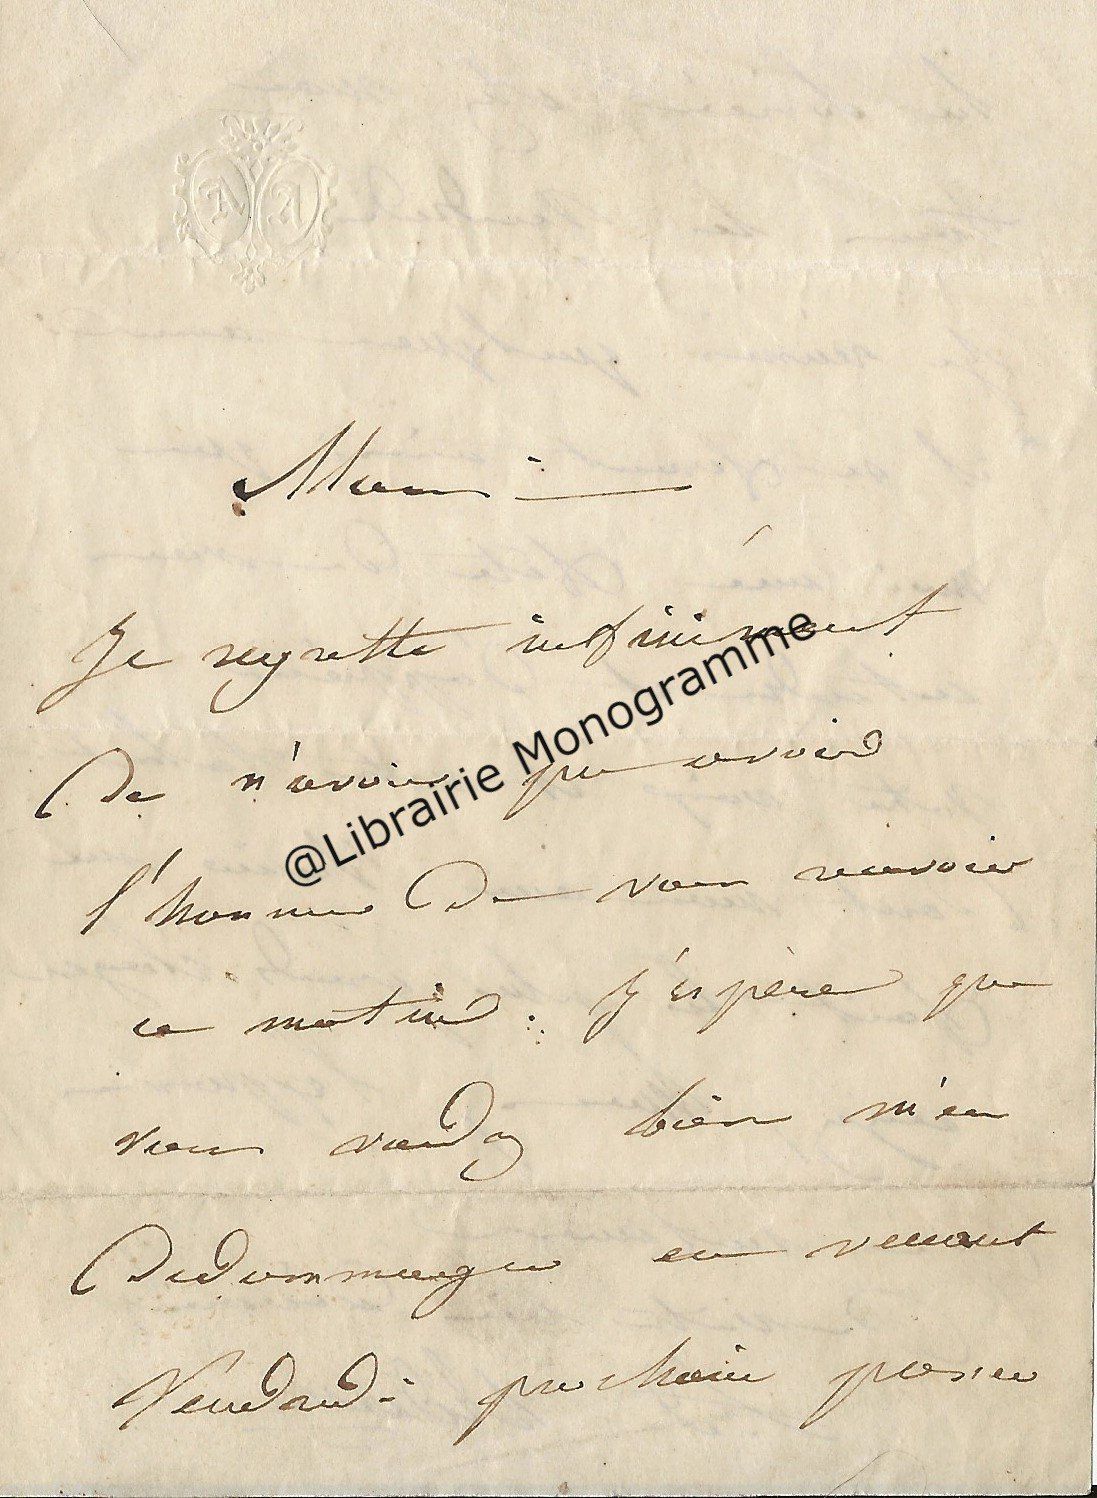 A A
Je regrette infiniment
de n'avoir pu avoir
l'honneur de vous recevoir
ce matin. J'espère que
vous voudrez bien m'en
dédommager en venant
Vendredi prochain passer
@Librairie Monogramme